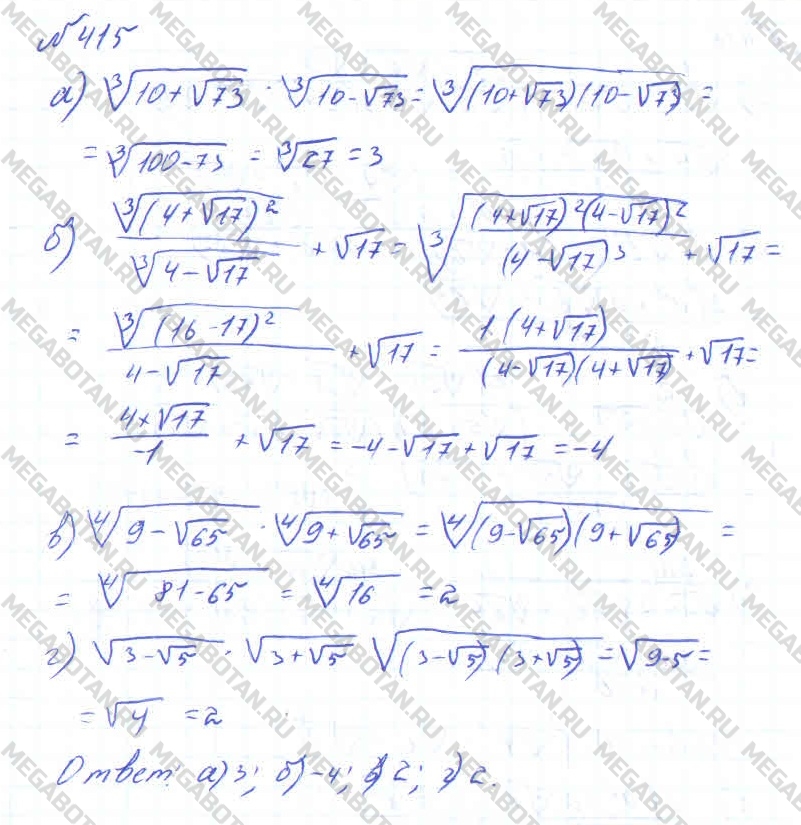 № 415
а) ∛(10+√73) · ∛(10-√73) = ∛((10+√73)(10-√73)) =
= ∛(100-73) = ∛27 = 3
б) ∛((4+√17)²) / ∛(4-√17) + √17 = ∛((4+√17)²(4-√17)² / (4-√17)³) + √17 =
= ∛((16-17)²) / (4-√17) + √17 = 1·(4+√17) / ((4-√17)(4+√17)) + √17 =
= (4+√17) / -1 + √17 = -4-√17+√17 = -4
в) ∜(9-√65) · ∜(9+√65) = ∜((9-√65)(9+√65)) =
= ∜(81-65) = ∜16 = 2
г) √(3-√5) · √(3+√5) √((3-√5)(3+√5)) = √(9-5) =
= √4 = 2
Ответ: а) 3; б) -4; в) 2; г) 2.
MEGABOTAN.RU